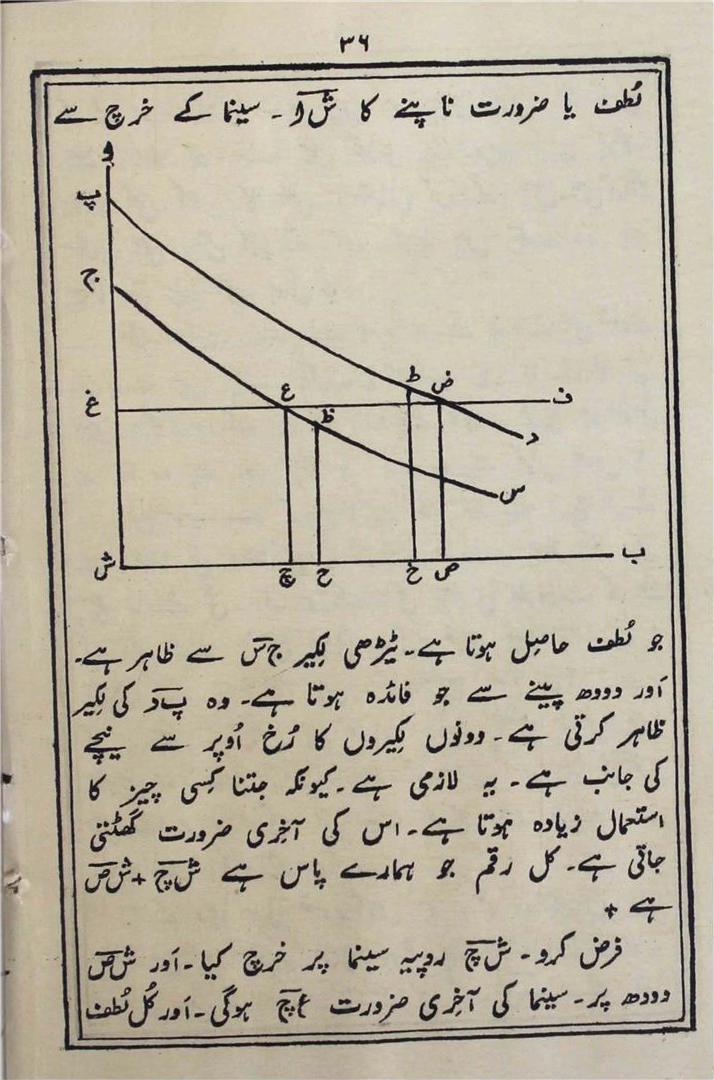 ۳۶
لُطف یا ضرورت ناپنے کا ش و۔ سینما کے خرچ سے
و
پ
ج
ط ض
غ ع ف
ظ د
س
ش چ ح خ ص ب
جو لُطف حاصِل ہوتا ہے۔ ٹیڑھی لکِیر ج س سے ظاہر ہے۔
اَور دودھ پینے سے جو فائدہ ہوتا ہے۔ وہ پ د کی لکِیر
ظاہر کرتی ہے۔ دونوں لکِیروں کا رُخ اُوپر سے نیچے
کی جانب ہے۔ یہ لازمی ہے۔ کیونکہ جتنا کِسی چیز کا
استعمال زیادہ ہوتا ہے۔ اس کی آخِری ضرورت گھٹتی
جاتی ہے۔ کل رقم جو ہمارے پاس ہے ش چ + ش ص
ہے +
فرض کرو۔ ش چ روپیہ سینما پر خرچ کیا۔ اَور ش ص
دودھ پر۔ سینما کی آخِری ضرورت ع چ ہوگی۔ اَور کُل لُطف